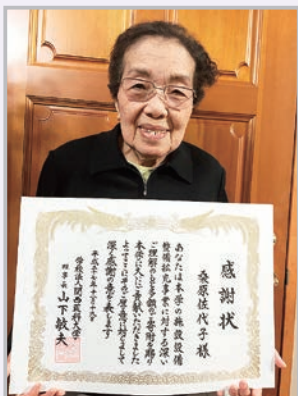 感謝状
桑原佐代子様
あなたは本学の施設設備
整備拡充事業に対する深い
ご理解のもと多額のご寄附を賜り
本学に大いに貢献いただきました
よってここにそのご厚意に対しまして
深く感謝の意を表します
平成二十七年十二月十九日
学校法人関西医科大学
理事長 山下敏夫